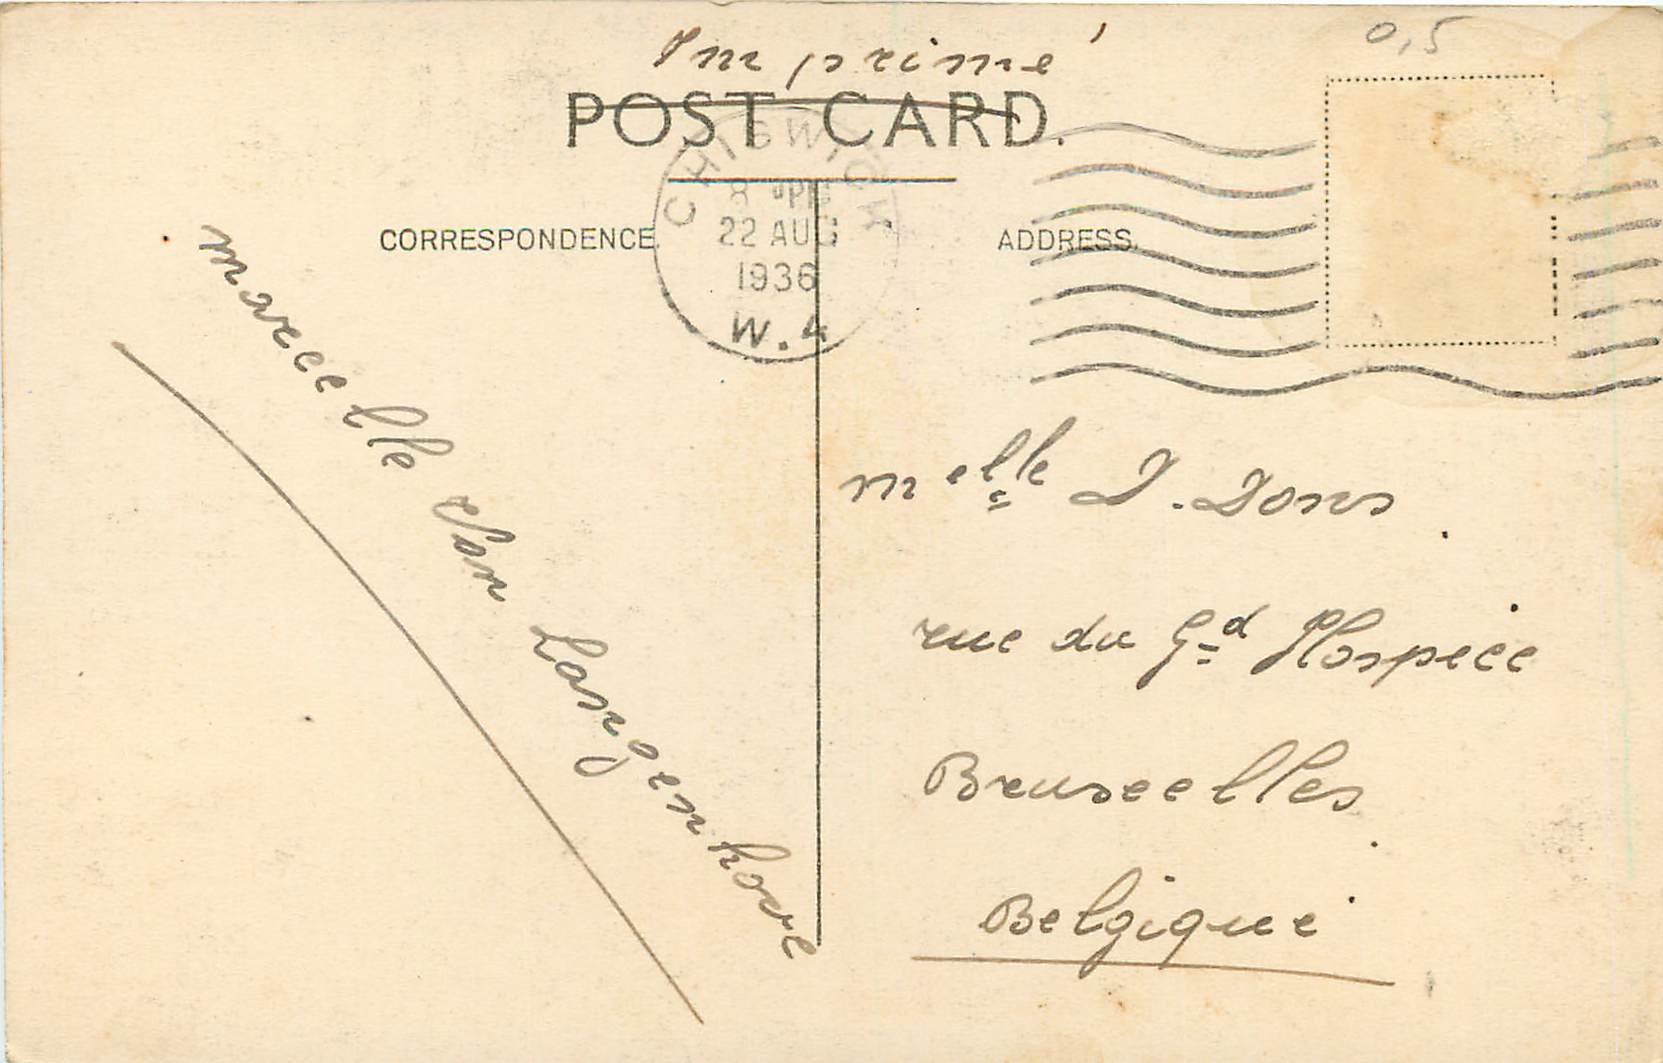 0,5
Imprimé
POST CARD.
CHISWICK
22 AUG
1936
W.4
CORRESPONDENCE.
ADDRESS.
Marcelle Van Langenhove
Melle D. Dons
rue du Gd Hospice
Bruxelles
Belgique